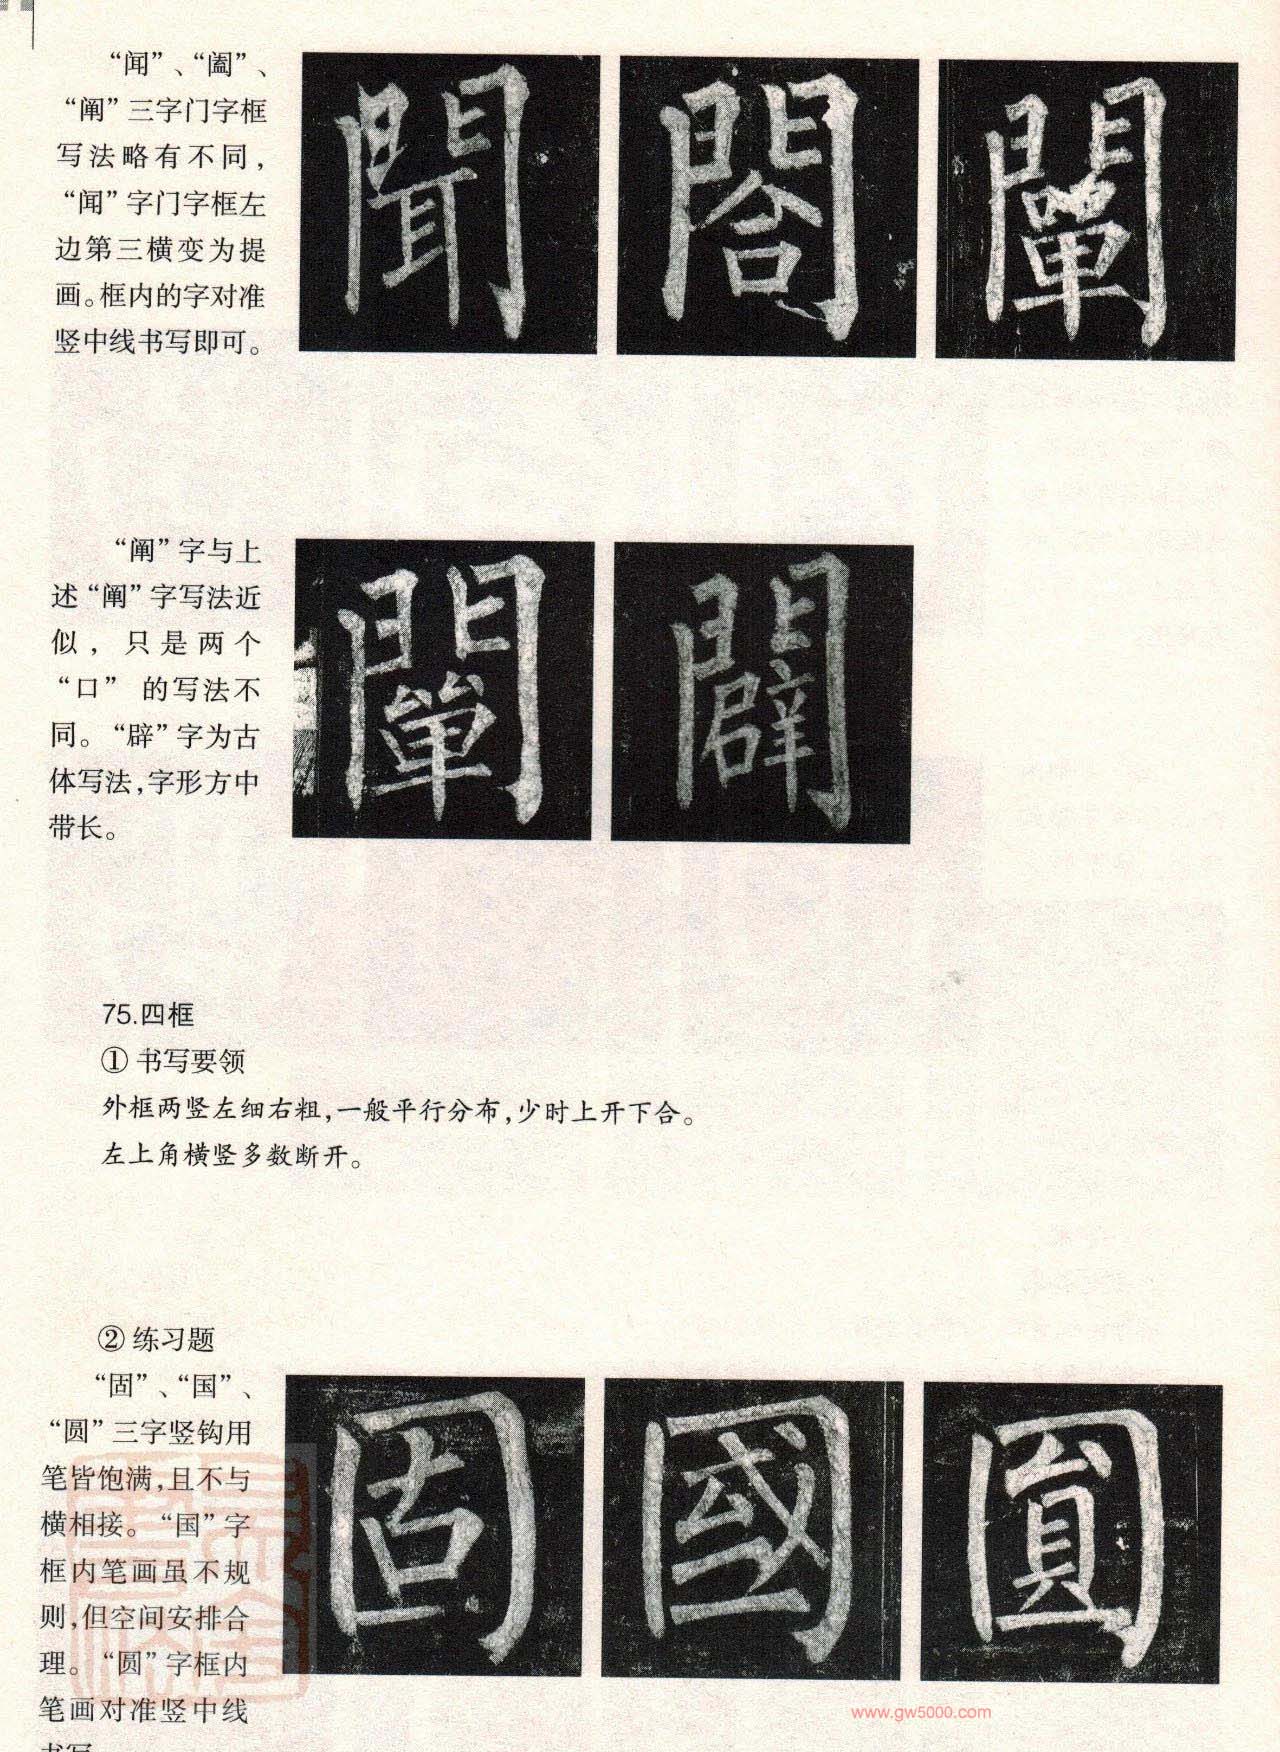 “闻”、“阖”、
“阐”三字门字框
写法略有不同，
“闻”字门字框左
边第三横变为提
画。框内的字对准
竖中线书写即可。
聞 閤 闡
“阐”字与上
述“阐”字写法近
似，只是两个
“口” 的写法不
同。“辟”字为古
体写法，字形方中
带长。
闡 闢
75.四框
① 书写要领
外框两竖左细右粗，一般平行分布，少时上开下合。
左上角横竖多数断开。
② 练习题
“固”、“国”、
“圆”三字竖钩用
笔皆饱满，且不与
横相接。“国”字
框内笔画虽不规
则，但空间安排合
理。“圆”字框内
笔画对准竖中线
固 國 圓
www.gw5000.com